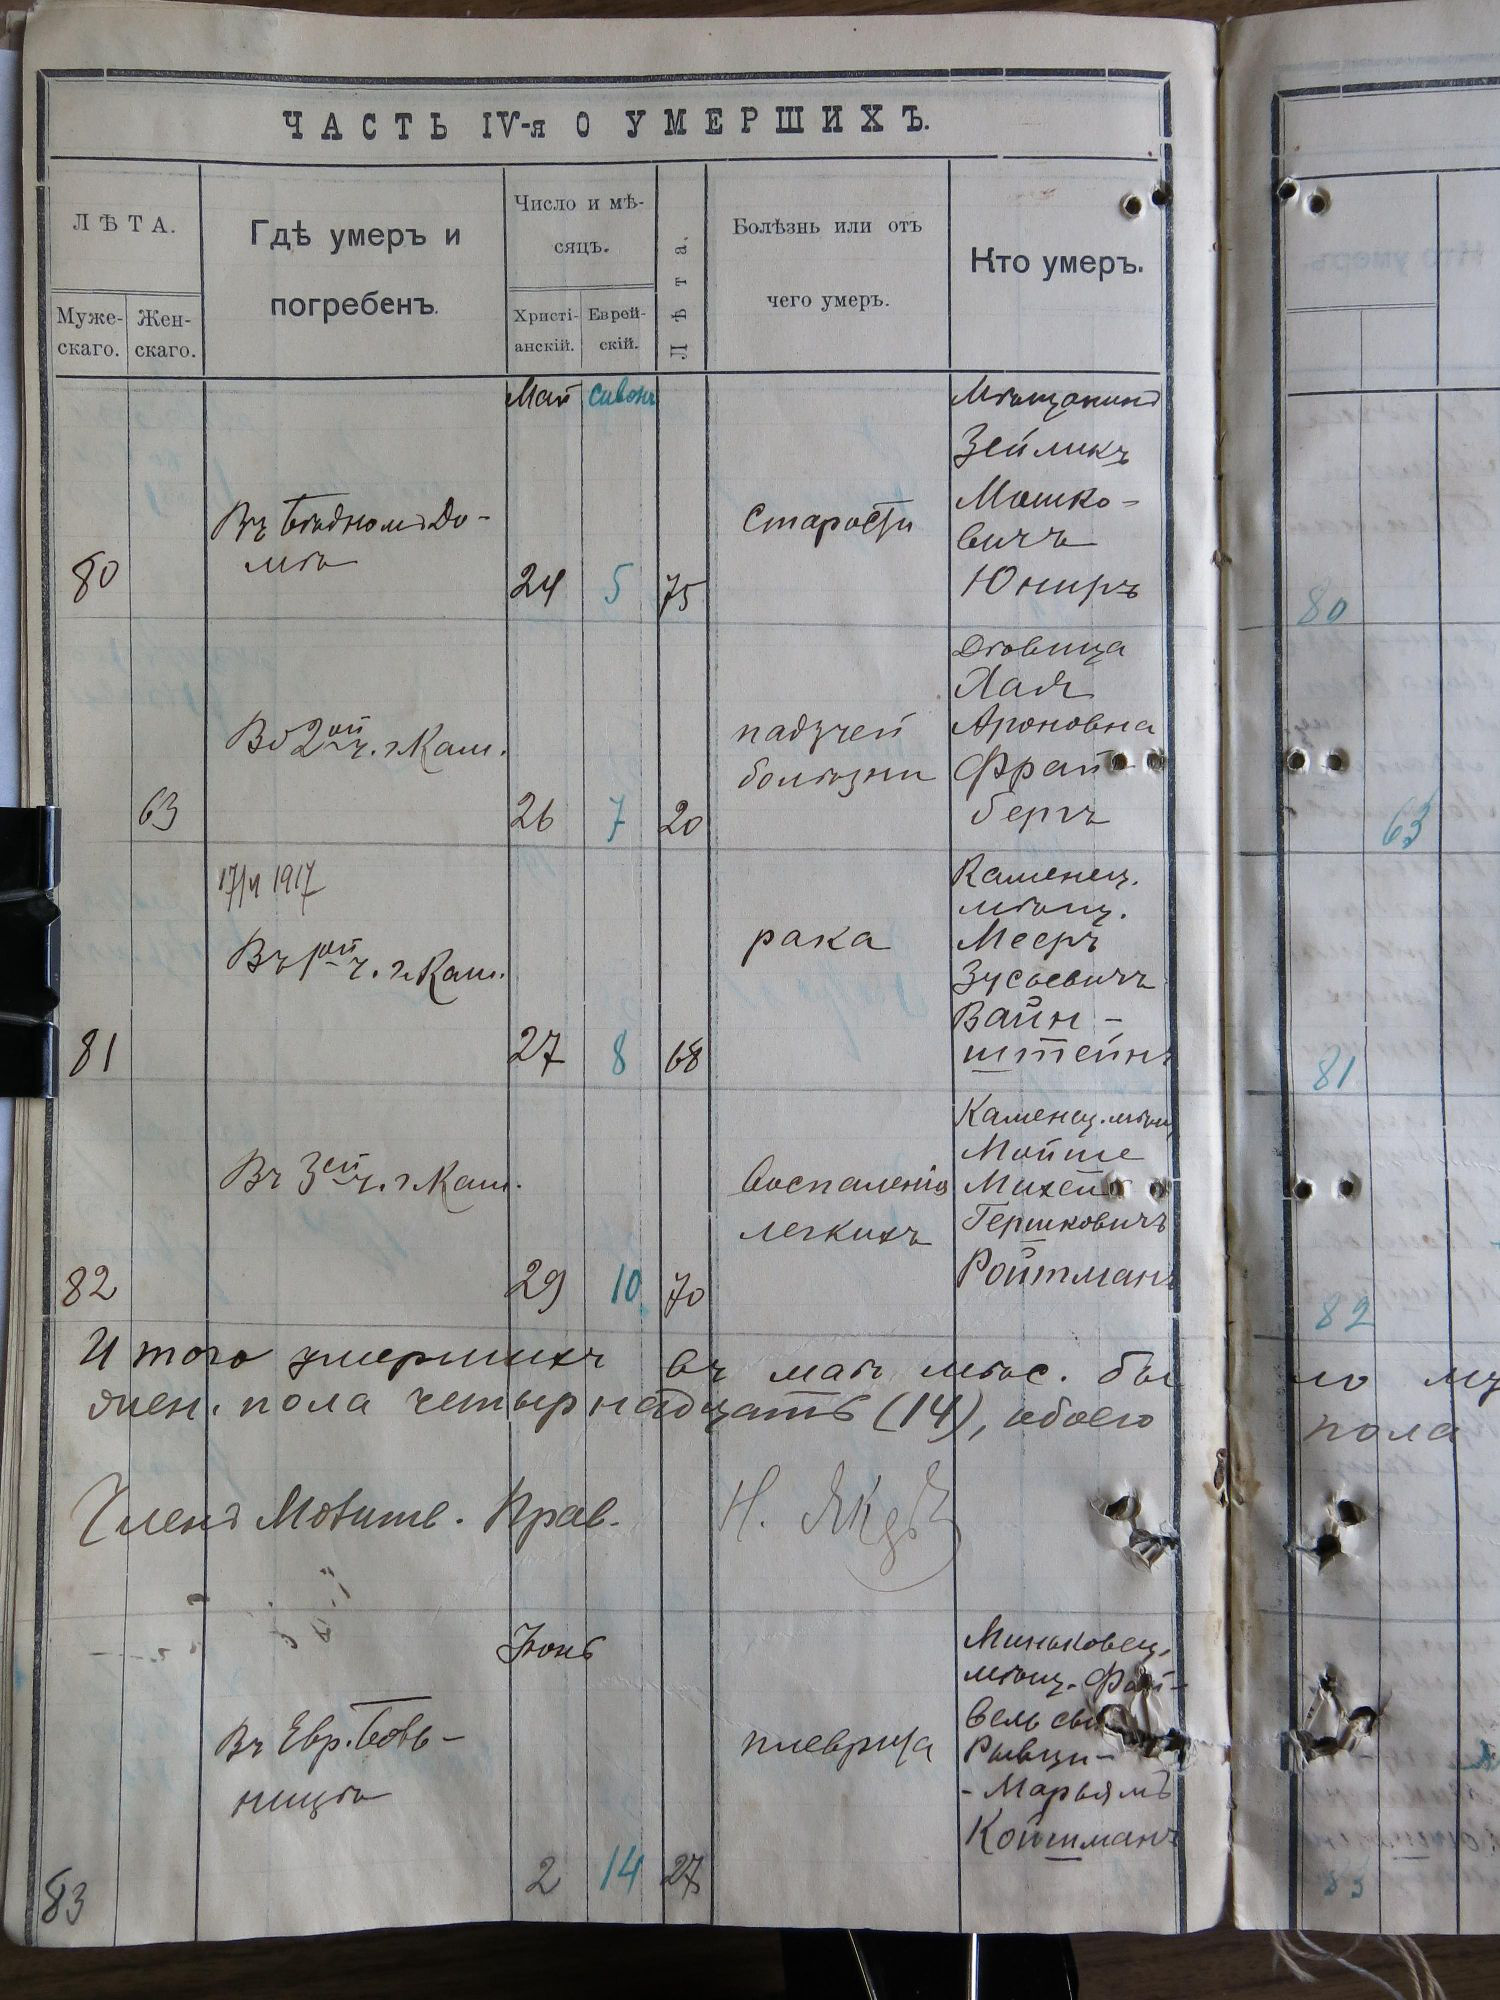 ЧАСТЬ IV-я О УМЕРШИХЪ.
ЛѢТА.
Муже-
скаго.
Жен-
скаго.
Гдѣ умеръ и
погребенъ.
Число и мѣ-
сяцъ.
Христі-
анскій.
Еврей-
скій.
Лѣта.
Болѣзнь или отъ
чего умеръ.
Кто умеръ.
Май
Сивонъ
80
Въ Бѣдномъ До-
мѣ
24
5
75
Старости
Мѣщанинъ
Зейликъ
Мошко-
вичъ
Юниръ
80
63
Во 2ой ч. г. Кам.
26
7
20
падучей
болѣзни
Дѣвица
Хая
Ароновна
Фрай-
бергъ
63
1917
81
Въ 1ой ч. г. Кам.
27
8
68
рака
Каменец.
мѣщ.
Мееръ
Зусьевичъ
Вайн-
штейнъ
81
82
Въ 3ей ч. г. Кам.
29
10
70
Воспаленія
легкихъ
Каменец. мѣщ.
Мойше
Михель
Гершковичъ
Ройтманъ
82
Итого умершихъ въ маѣ мѣс. было му
жен. пола четырнадцать (14), обоего пола
Членъ Молитв. Прав.
Іюнь
83
Въ Евр. Боль-
ницѣ
2
14
27
плеврита
Миньковец.
мѣщ. Фай-
вель сынъ
Рывци-
-Марьямъ
Койтманъ
83